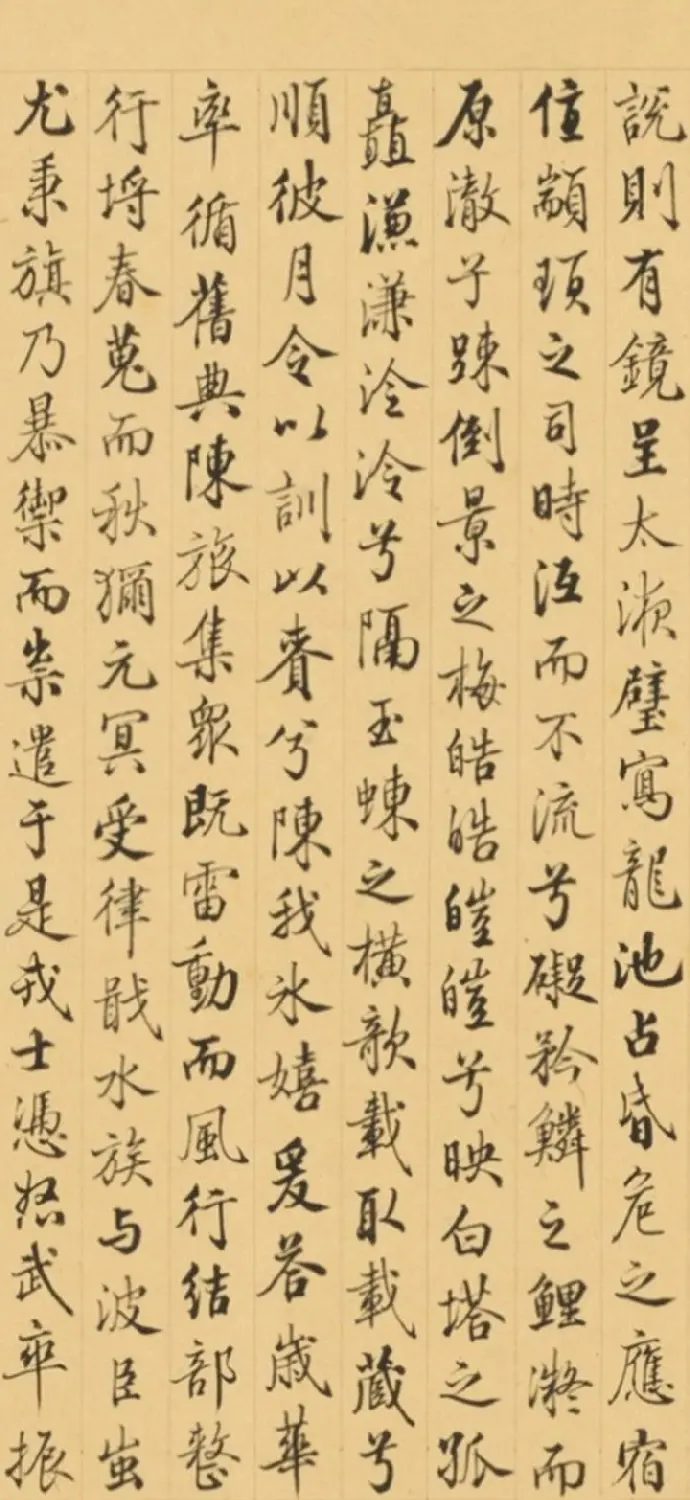 說則有鏡呈太液璧寫龍池占昏危之應宿
值顓頊之司時沍而不流兮礙矜鱗之鯉凝而
原澈乎踈倒景之梅皓皓皚皚兮映白塔之孤
矗溓溓泠泠兮隔玉蝀之橫欹載取載藏兮
順彼月令以訓以賚兮陳我氷嬉爰荅嵗華
率循舊典陳旅集衆既雷動而風行結部整
行埒春蒐而秋獮元冥受律戢水族与波臣蚩
尤秉旗乃暴禦而祟遣于是戎士憑怒武卒振